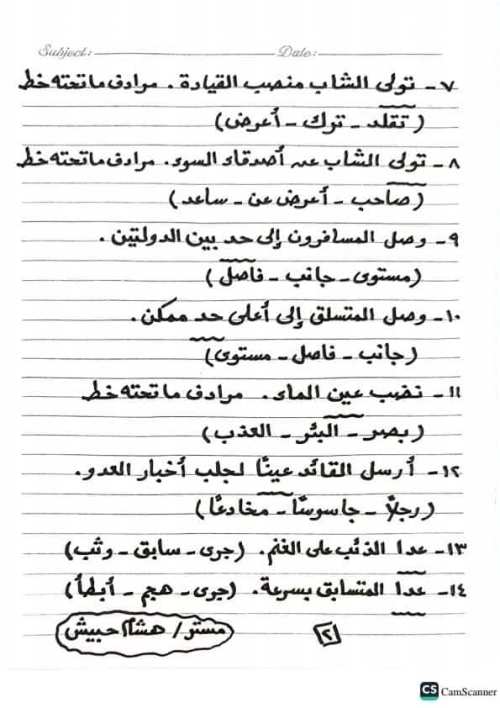 Subject: Date:
٧- تولى الشاب منصب القيادة. مرادف ما تحته خط
(تقلد - ترك - أعرض)
٨- تولى الشاب عن أصدقاء السوء. مرادف ما تحته خط
(صاحب - أعرض عن - ساعد)
٩- وصل المسافرون إلى حد بين الدولتين.
(مستوى - جانب - فاصل)
١٠- وصل المتسلق إلى أعلى حد ممكن.
(جانب - فاصل - مستوى)
١١- نضب عين الماء. مرادف ما تحته خط
(بصر - البئر - العذب)
١٢- أرسل القائد عينًا لجلب أخبار العدو.
(رجلاً - جاسوسًا - مخادعًا)
١٣- عدا الذئب على الغنم. (جرى - سابق - وثب)
١٤- عدا المتسابق بسرعة. (جرى - هجم - أبطأ)
مستر/ هشام حبيش
٢
CS CamScanner